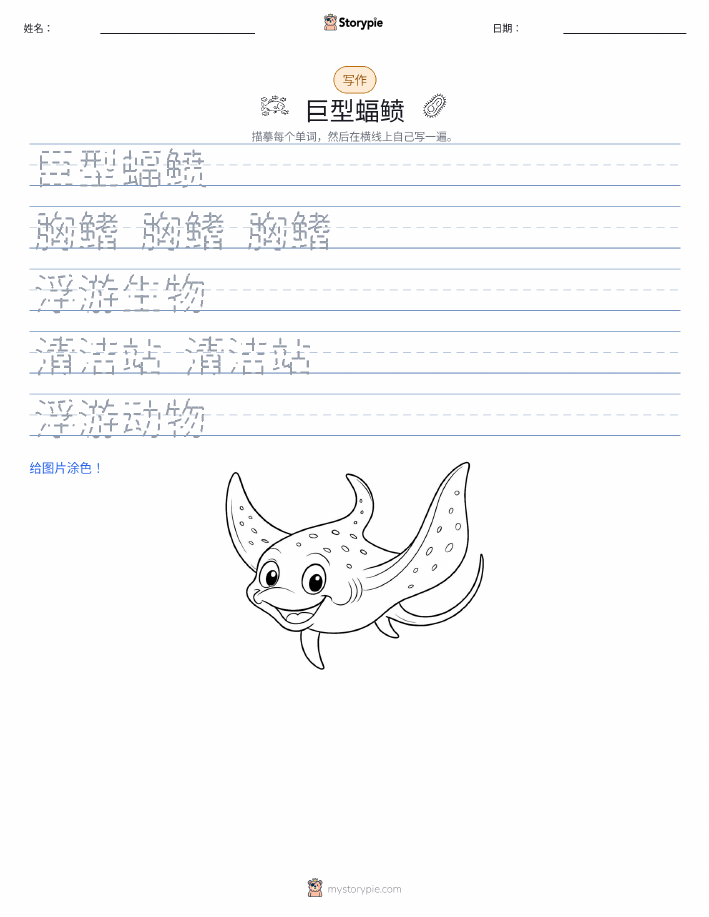 姓名：
Storypie
日期：
写作
巨型蝠鲼
描摹每个单词，然后在横线上自己写一遍。
巨型蝠鲼
胸鳍 胸鳍 胸鳍
浮游生物
清洁站 清洁站
浮游动物
给图片涂色！
mystorypie.com